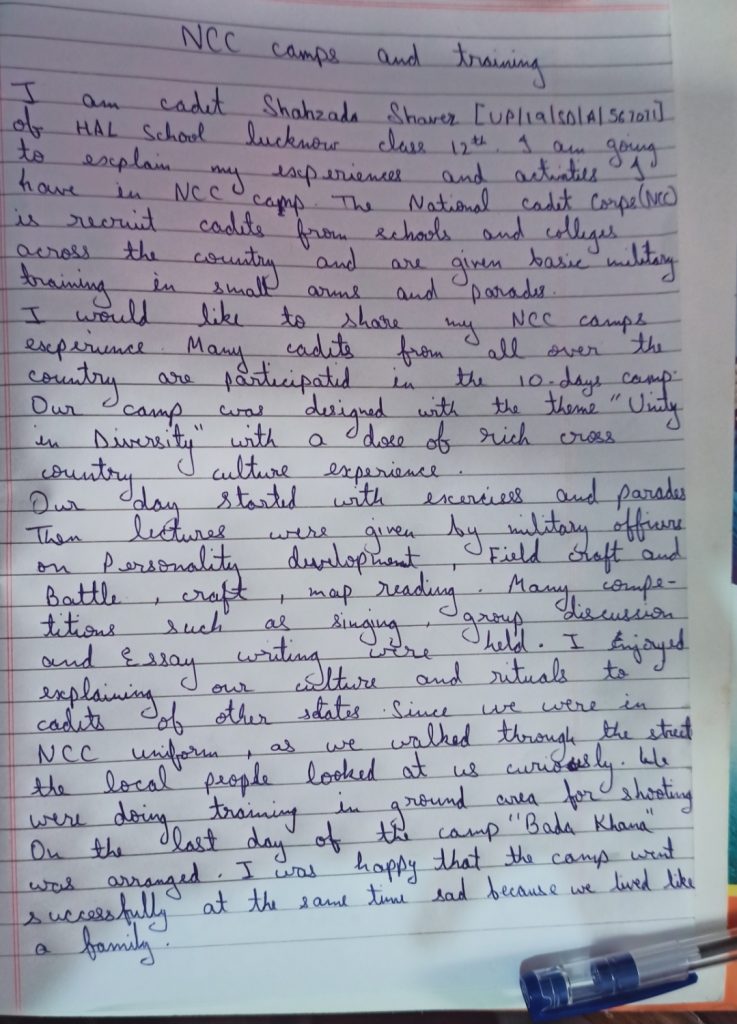 NCC camps and training
I am cadet Shahzada Shavez [UP/19/SD/A/567071]
of HAL School lucknow class 12th. I am going
to explain my experiences and activities I
have in NCC camp. The National cadet Corps (NCC)
is recruit cadets from schools and colleges
across the country and are given basic military
training in small arms and parades.
I would like to share my NCC camps
experience. Many cadets from all over the
country are participated in the 10-days camp.
Our camp was designed with the theme "Unity
in Diversity" with a dose of rich cross
country culture experience.
Our day started with exercises and parades
Then lectures were given by military officers
on Personality development, Field craft and
Battle, craft, map reading. Many compe-
titions such as singing, group discussion
and Essay writing were held. I Enjoyed
explaining our culture and rituals to
cadets of other states. Since we were in
NCC uniform, as we walked through the street
the local people looked at us curiously. We
were doing training in ground area for shooting
On the last day of the camp "Bada Khana"
was arranged. I was happy that the camp went
successfully at the same time sad because we lived like
a family.